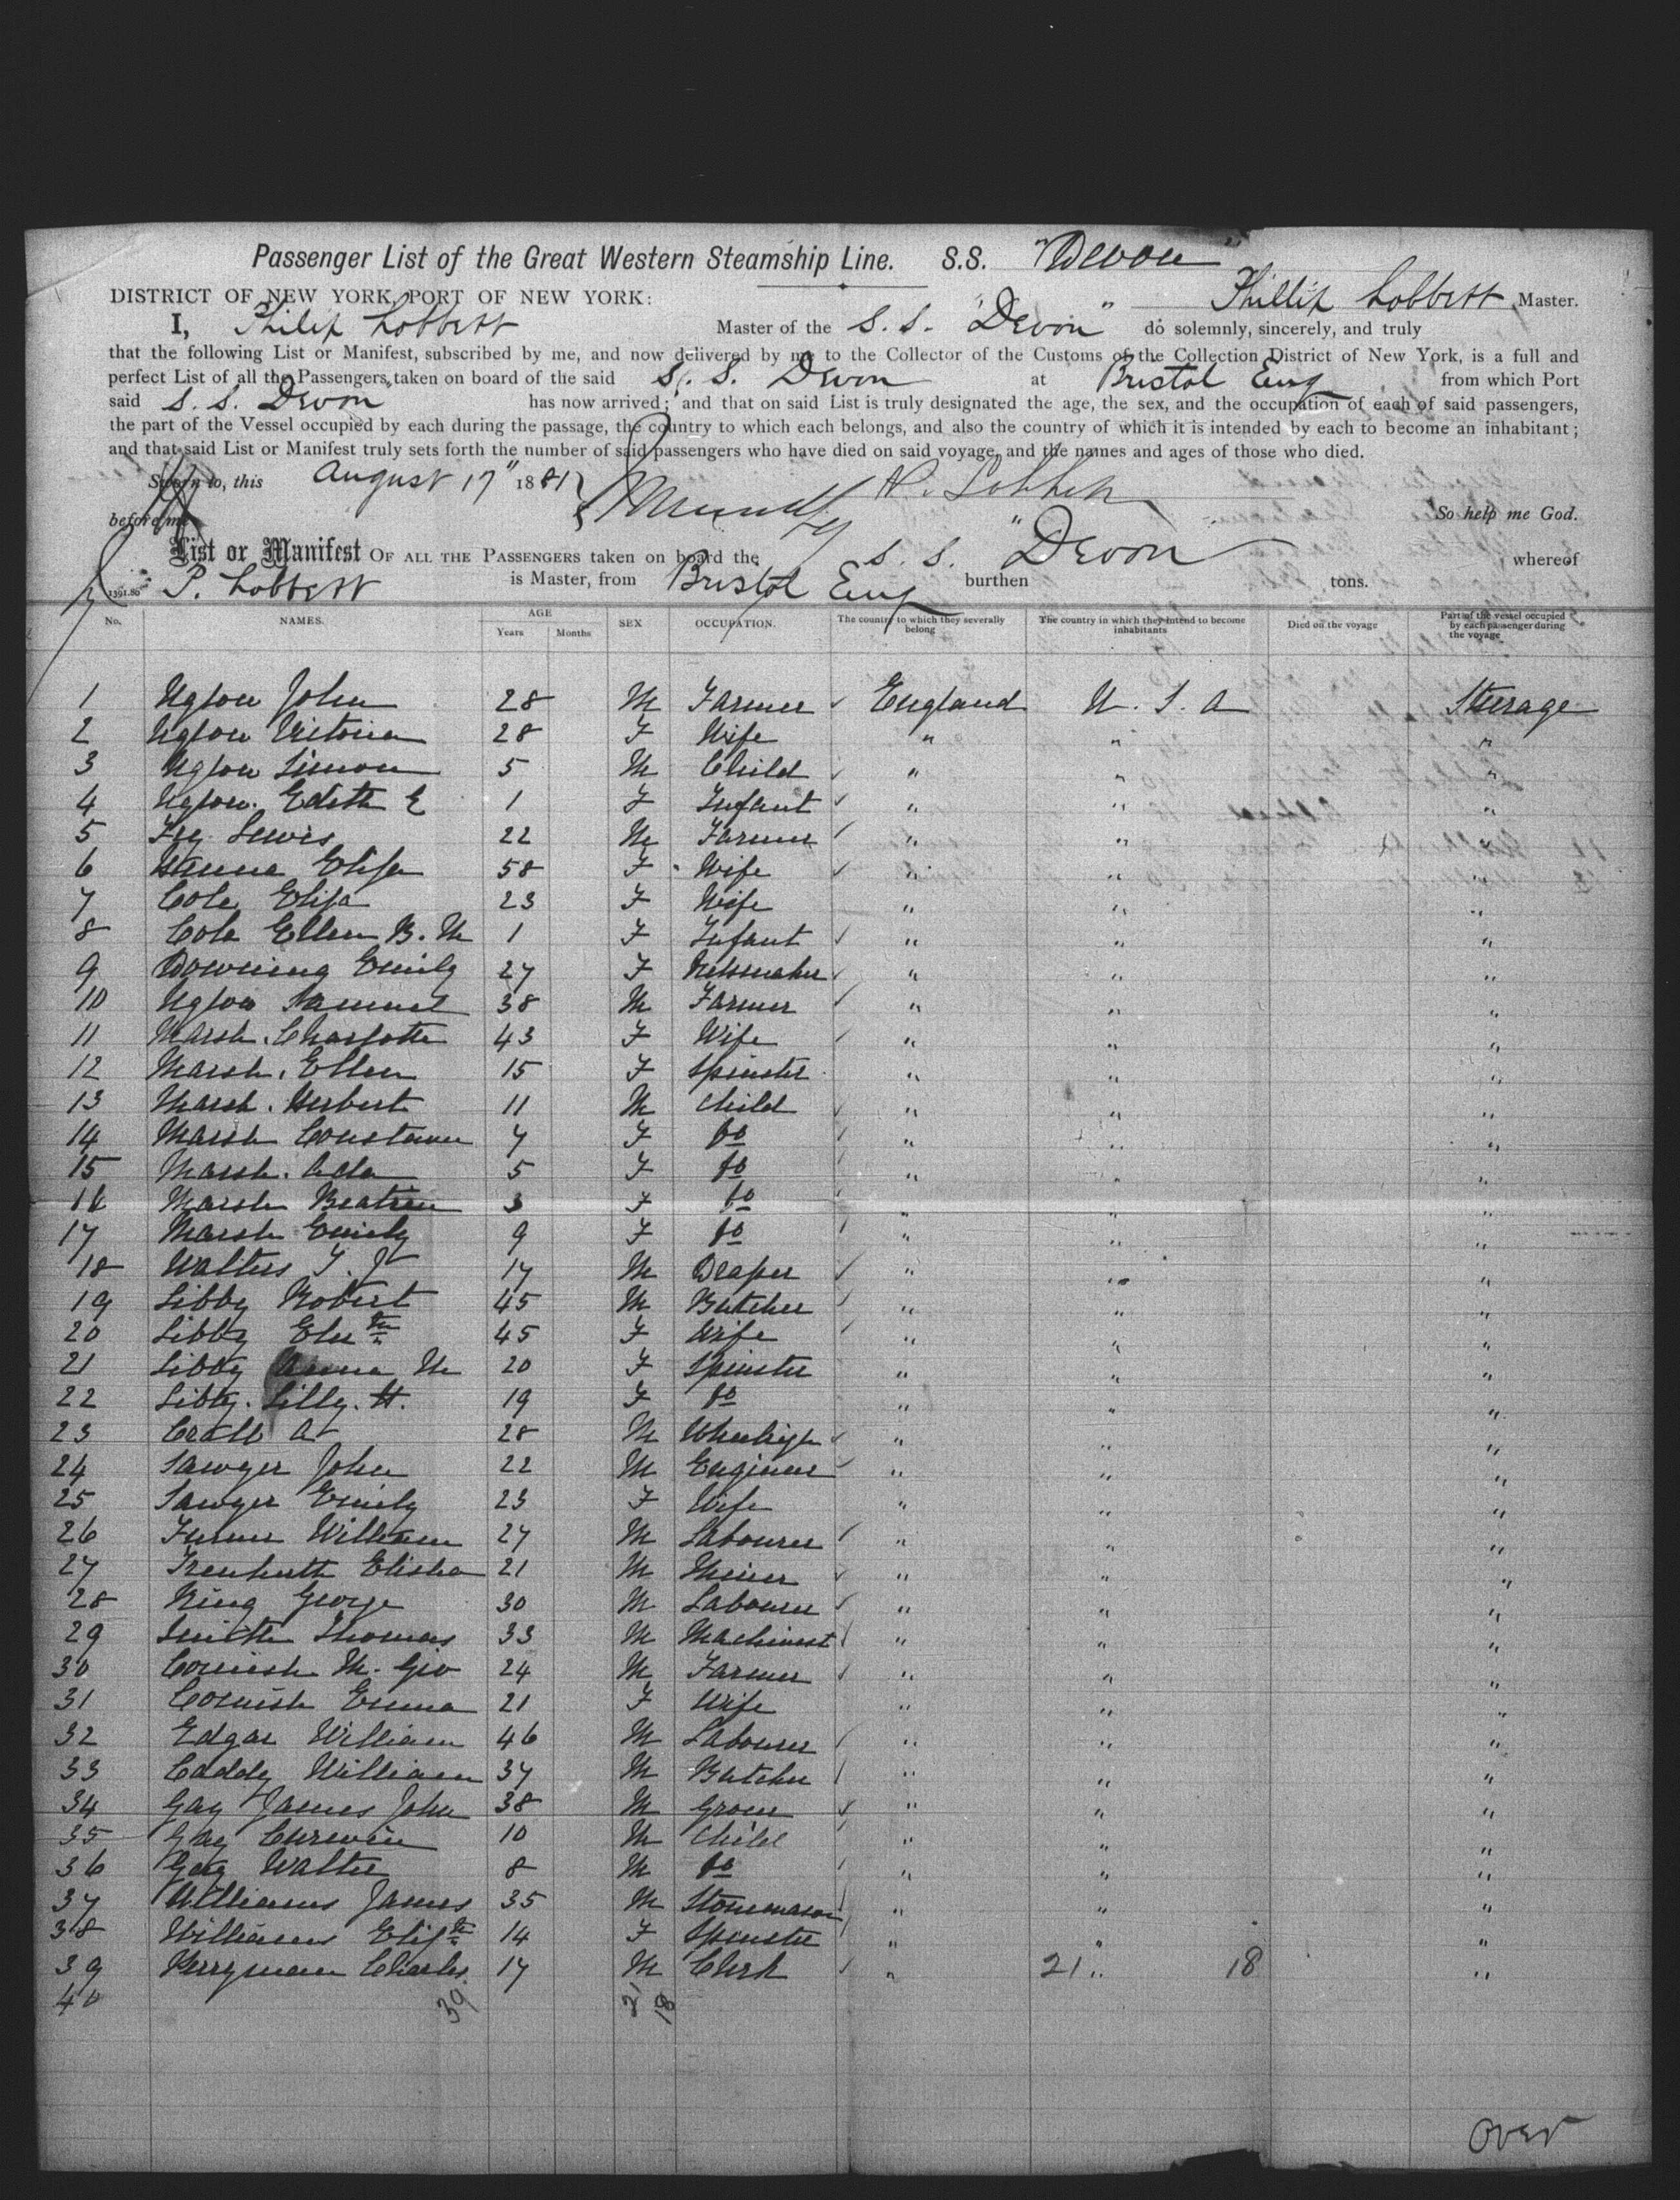 Passenger List of the Great Western Steamship Line. S.S. "Devon"
DISTRICT OF NEW YORK, PORT OF NEW YORK: " " Phillip Lobbett, Master.
I, Philip Lobbett Master of the S.S. "Devon" do solemnly, sincerely, and truly
that the following List or Manifest, subscribed by me, and now delivered by me to the Collector of the Customs of the Collection District of New York, is a full and
perfect List of all the Passengers taken on board of the said S.S. Devon at Bristol Eng from which Port
said S.S. Devon has now arrived; and that on said List is truly designated the age, the sex, and the occupation of each of said passengers,
the part of the Vessel occupied by each during the passage, the country to which each belongs, and also the country of which it is intended by each to become an inhabitant;
and that said List or Manifest truly sets forth the number of said passengers who have died on said voyage, and the names and ages of those who died.
Sworn to, this August 17" 1881 P. Lobbett
before me So help me God.
List or Manifest OF ALL THE PASSENGERS taken on board the S.S. "Devon whereof
P. Lobbett is Master, from Bristol Eng burthen tons.
No. NAMES. AGE Years Months SEX OCCUPATION. The country to which they severally belong The country in which they intend to become inhabitants Died on the voyage Part of the vessel occupied by each passenger during the voyage
1 Uglow John 28 M Farmer England U.S.A Steerage
2 Uglow Victoria 28 F Wife " " "
3 Uglow Simon 5 M Child " " "
4 Uglow Edith E 1 F Infant " " "
5 Fry Lewis 22 M Farmer " " "
6 Eliza 58 F Wife " " "
7 Cole Eliza 23 F Wife " " "
8 Cole Ellen B. M 1 F Infant " " "
9 Downing Emily 27 F " " "
10 Uglow Samuel 38 M Farmer " " "
11 Marsh. Charlotte 43 F Wife " " "
12 Marsh. Ellen 15 F Spinster " " "
13 Marsh. Herbert 11 M Child " " "
14 Marsh Constance 7 F Do " " "
15 Marsh. Ada 5 F Do " " "
16 Marsh Beatrice 3 F Do " " "
17 Marsh Emily 9 F Do " " "
18 Walters 17 M Draper " " "
19 Libby Robert 45 M Butcher " " "
20 Libby Elizth 45 F Wife " " "
21 Libby Anna M 20 F Spinster " " "
22 Libby. Lilly. H. 19 F Do " " "
23 A 28 M " " "
24 Sawyer John 22 M Engineer " " "
25 Sawyer Emily 23 F Wife " " "
26 William 27 M Labourer " " "
27 Elisha 21 M Miner " " "
28 King George 30 M Labourer " " "
29 Smith Thomas 33 M Machinest " " "
30 Cornish M. Geo 24 M Farmer " " "
31 Cornish Emma 21 F Wife " " "
32 Edgar William 46 M Labourer " " "
33 Caddy William 37 M Butcher " " "
34 Gay James John 38 M " " "
35 Gay Curwin 10 M Child " " "
36 Gay Walter 8 M Do " " "
37 Williams James 35 M Stonemason " " "
38 Williams Elizth 14 F Spinster " " "
39 Perryman Charles 17 M Clerk " 21 " 18 "
40 39 21 18
over